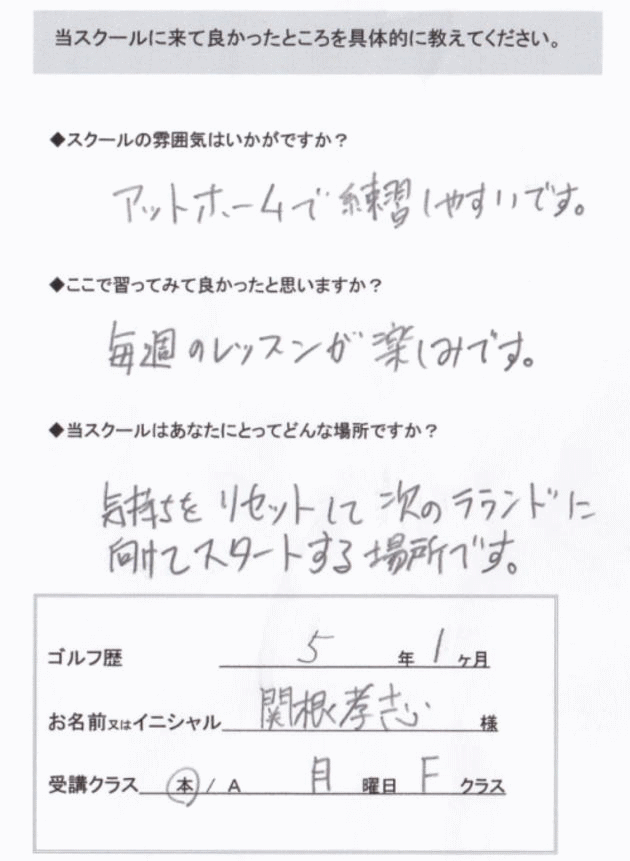 当スクールに来て良かったところを具体的に教えてください。
◆スクールの雰囲気はいかがですか?
アットホームで練習しやすいです。
◆ここで習ってみて良かったと思いますか?
毎週のレッスンが楽しみです。
◆当スクールはあなたにとってどんな場所ですか?
気持ちをリセットして次のラランドに
向けてスタートする場所です。
ゴルフ歴 5 年 1 ヶ月
お名前又はイニシャル 関根孝志 様
受講クラス 本 / A 月 曜日 F クラス